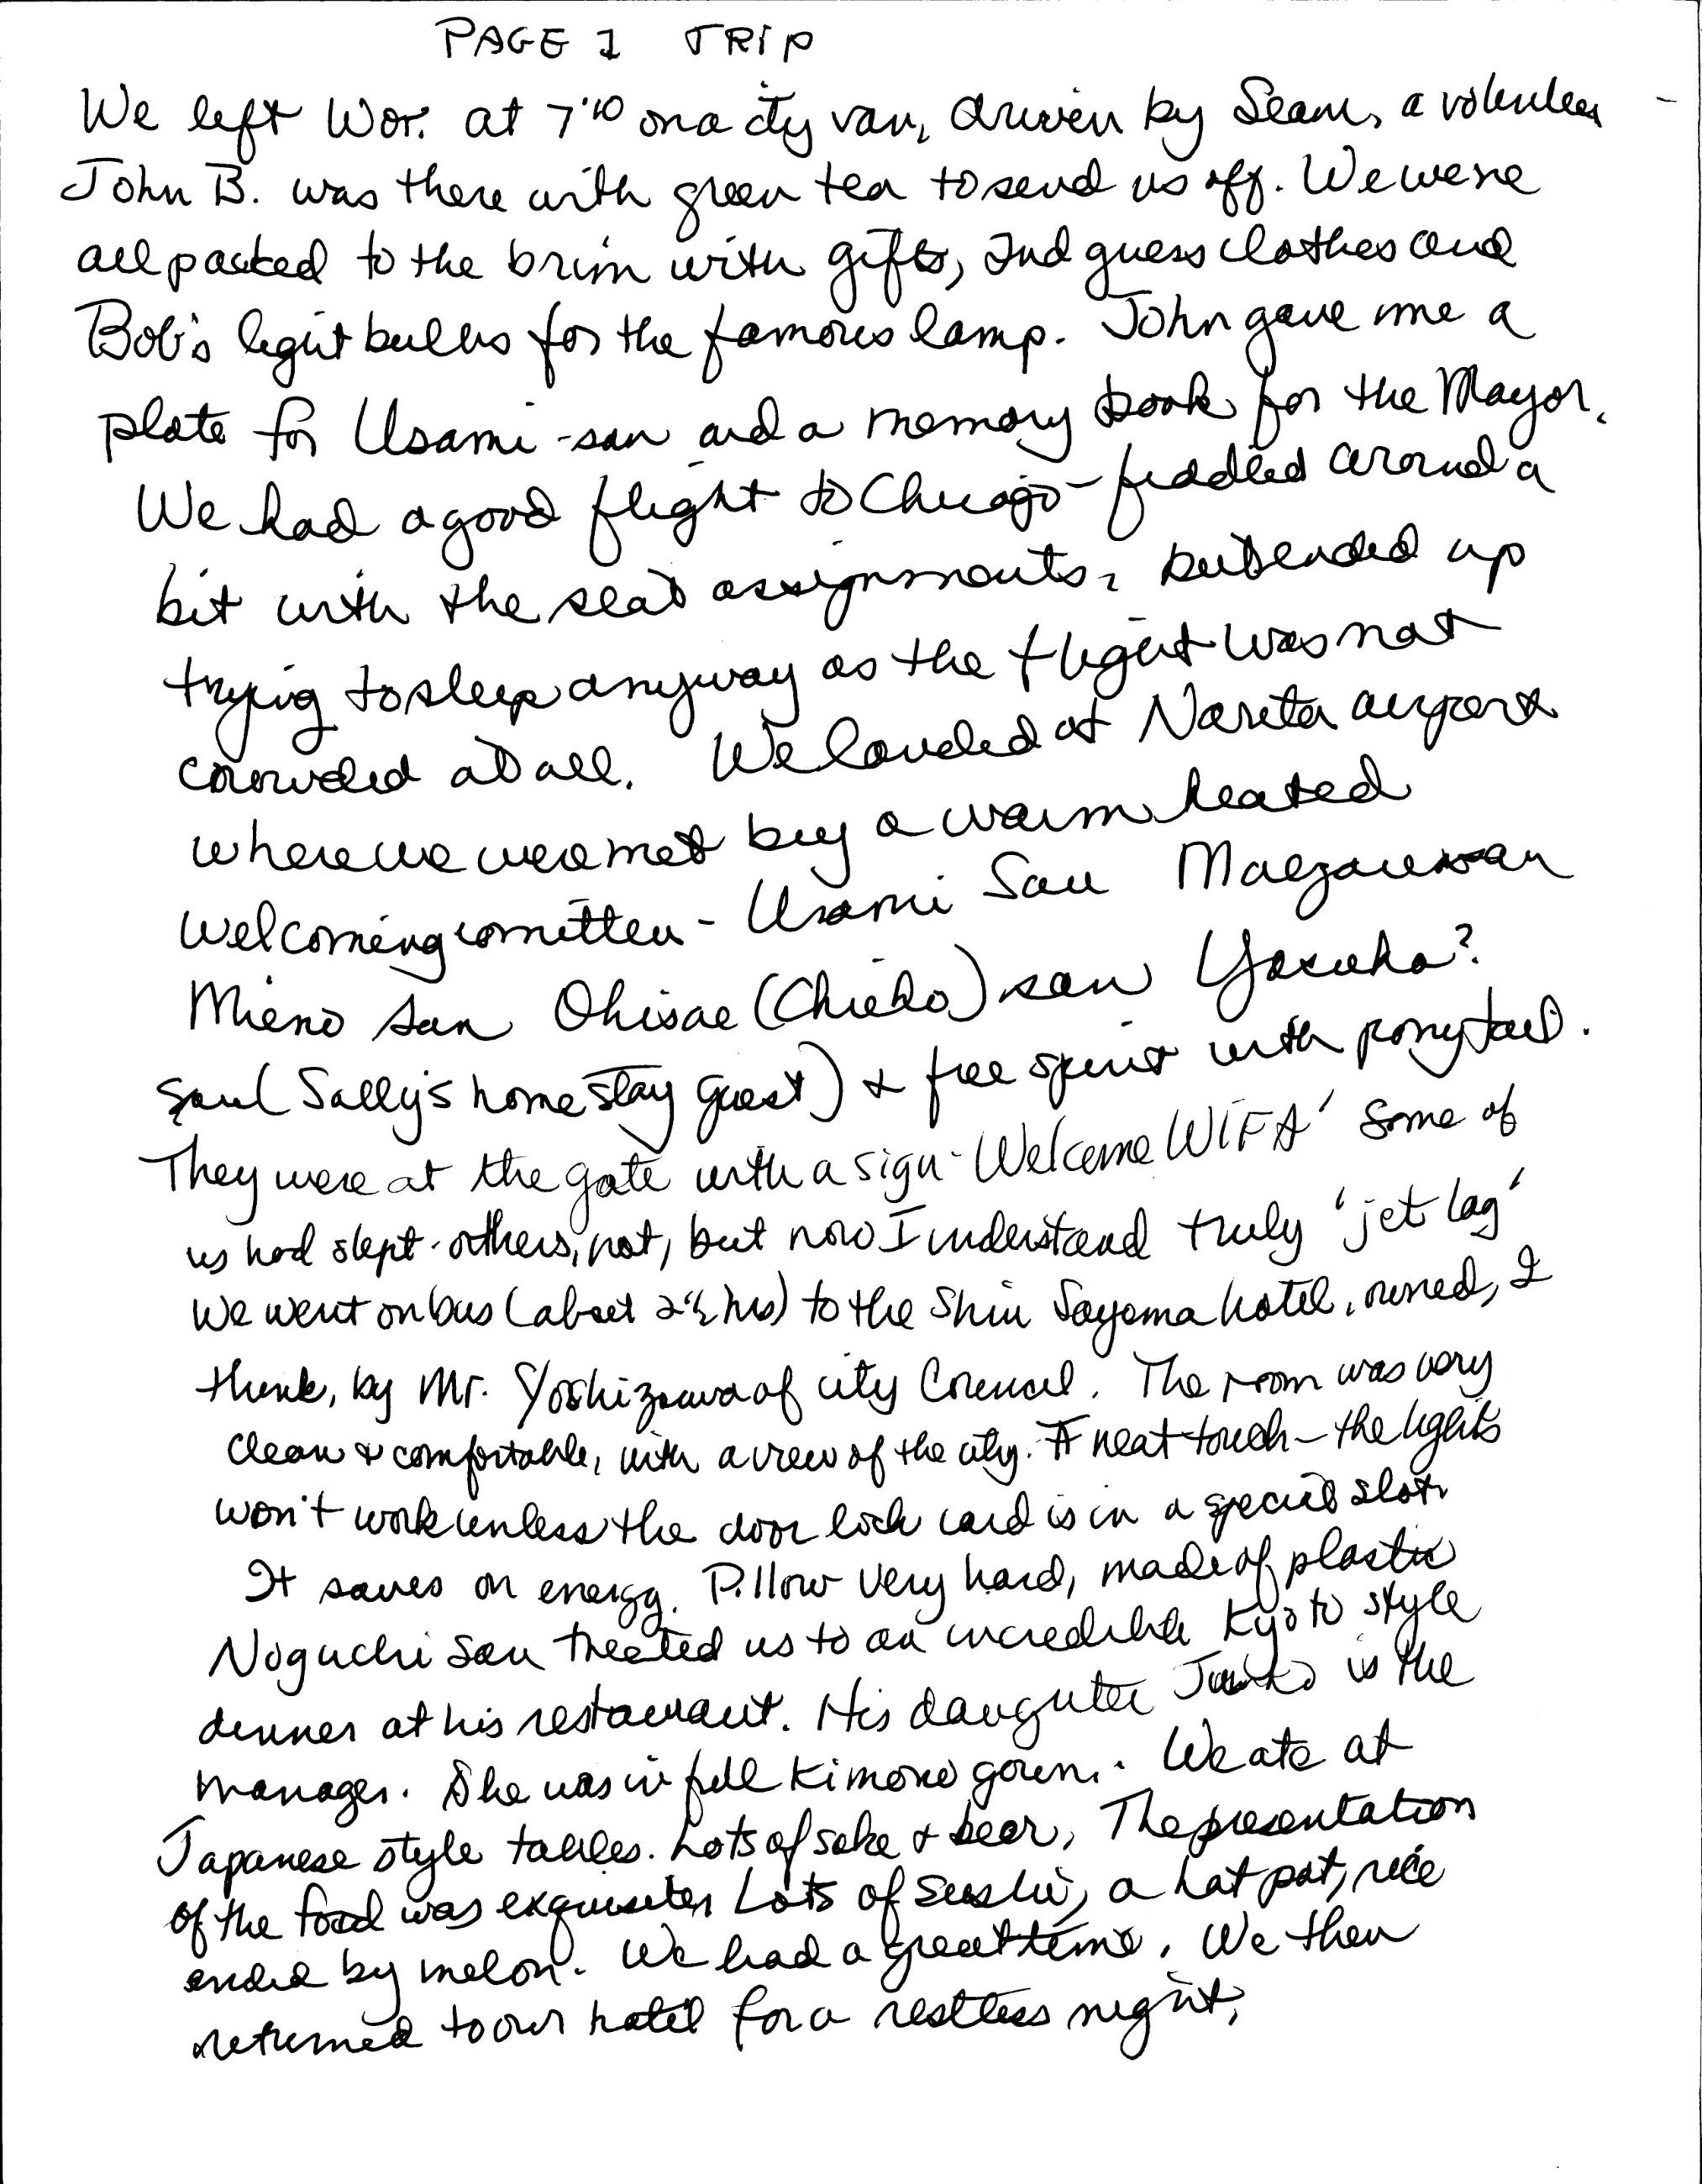 PAGE 1 TRIP
We left Wor. at 7:10 on a city van, driven by Sean, a volunteer
John B. was there with green tea to send us off. We were
all packed to the brim with gifts, and guess clothes and
Bob's light bulbs for the famous lamp. John gave me a
plate for Usami-san and a memory book for the Mayor.
We had a good flight to Chicago - fiddled around a
bit with the seat assignments, but ended up
trying to sleep anyway as the flight was not
crowded at all. We landed at Narita airport
where we were met by a warm heated
welcoming comittee - Usami San
Mieno San Ohisae (Chieko) san Yasuko?
san (Sally's home stay guest) & free spirit with ponytail.
They were at the gate with a sign - 'Welcome WIFA' Some of
us had slept - others, not, but now I understand truly 'jet lag'
We went on bus (about 2½ hrs) to the Shin Sayama hotel, owned, I
think, by Mr. Yoshizawa of city Council. The room was very
clean & comfortable, with a view of the city. A neat touch - the lights
won't work unless the door lock card is in a special slot.
It saves on energy. Pillow very hard, made of plastic
Noguchi San treated us to an incredible Kyoto style
dinner at his restaurant. His daughter Junko is the
manager. She was in full kimono gown. We ate at
Japanese style tables. Lots of sake & beer, The presentation
of the food was exquisite, Lots of sushi, a hot pot, rice
ended by melon. We had a great time. We then
returned to our hotel for a restless night,